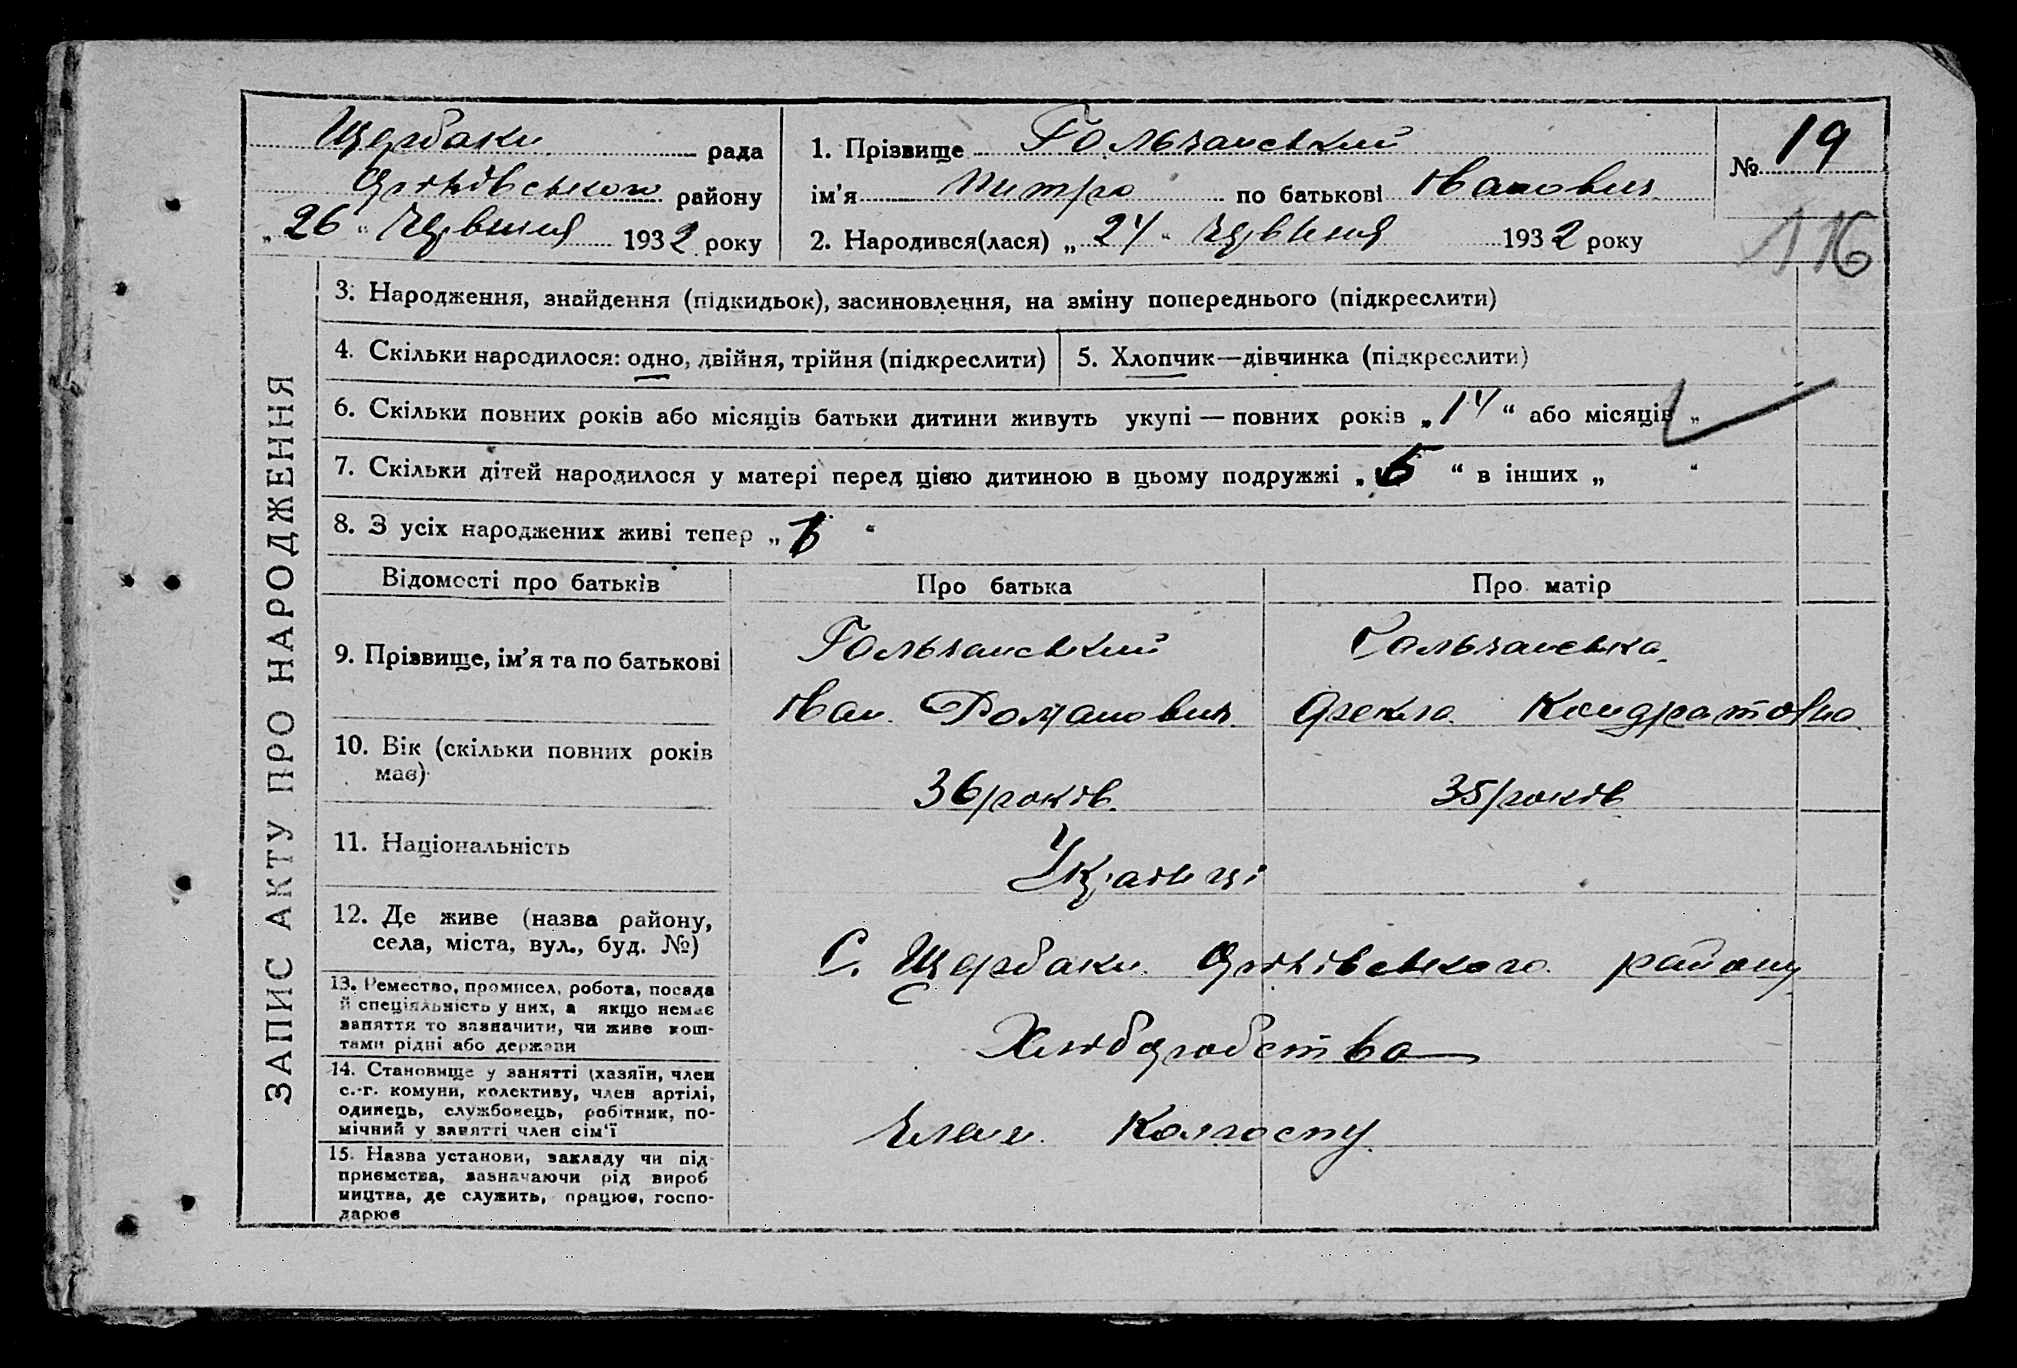 Щербаки рада
Оріхівського району
„26" Червния 1932 року
1. Прізвище Гольчанський
ім'я Митро по батькові Іванович
2. Народився(лася) „24" червния 1932 року
№ 19
116
ЗАПИС АКТУ ПРО НАРОДЖЕННЯ
3. Народження, знайдення (підкидьок), засиновлення, на зміну попереднього (підкреслити)
4. Скільки народилося: одно, двійня, трійня (підкреслити)
5. Хлопчик—дівчинка (підкреслити)
6. Скільки повних років або місяців батьки дитини живуть укупі — повних років „14" або місяців „
7. Скільки дітей народилося у матері перед цією дитиною в цьому подружжі „5" в інших „ "
8. З усіх народжених живі тепер „ "
Відомості про батьків
Про батька
Про матір
9. Прізвище, ім'я та по батькові
Гольчанський
Гольчанська
Іван Романович
Фекла Кондратовна
10. Вік (скільки повних років
має)
36 років
35 років
11. Національність
Українці
12. Де живе (назва району,
села, міста, вул., буд. №)
С. Щербаки Оріхівського району
13. Ремество, промисел, робота, посада
й спеціяльність у них, а якщо немає
заняття то зазначити, чи живе кош-
тами рідні або держави
Хліборобства
14. Становище у занятті (хазяїн, член
с.-г. комуни, колективу, член артілі,
одинець, службовець, робітник, по-
мічний у занятті член сім'ї
Член Колгоспу
15. Назва установи, закладу чи під-
приємства, зазначаючи рід вироб
ництва, де служить, працює, госпо-
дарює